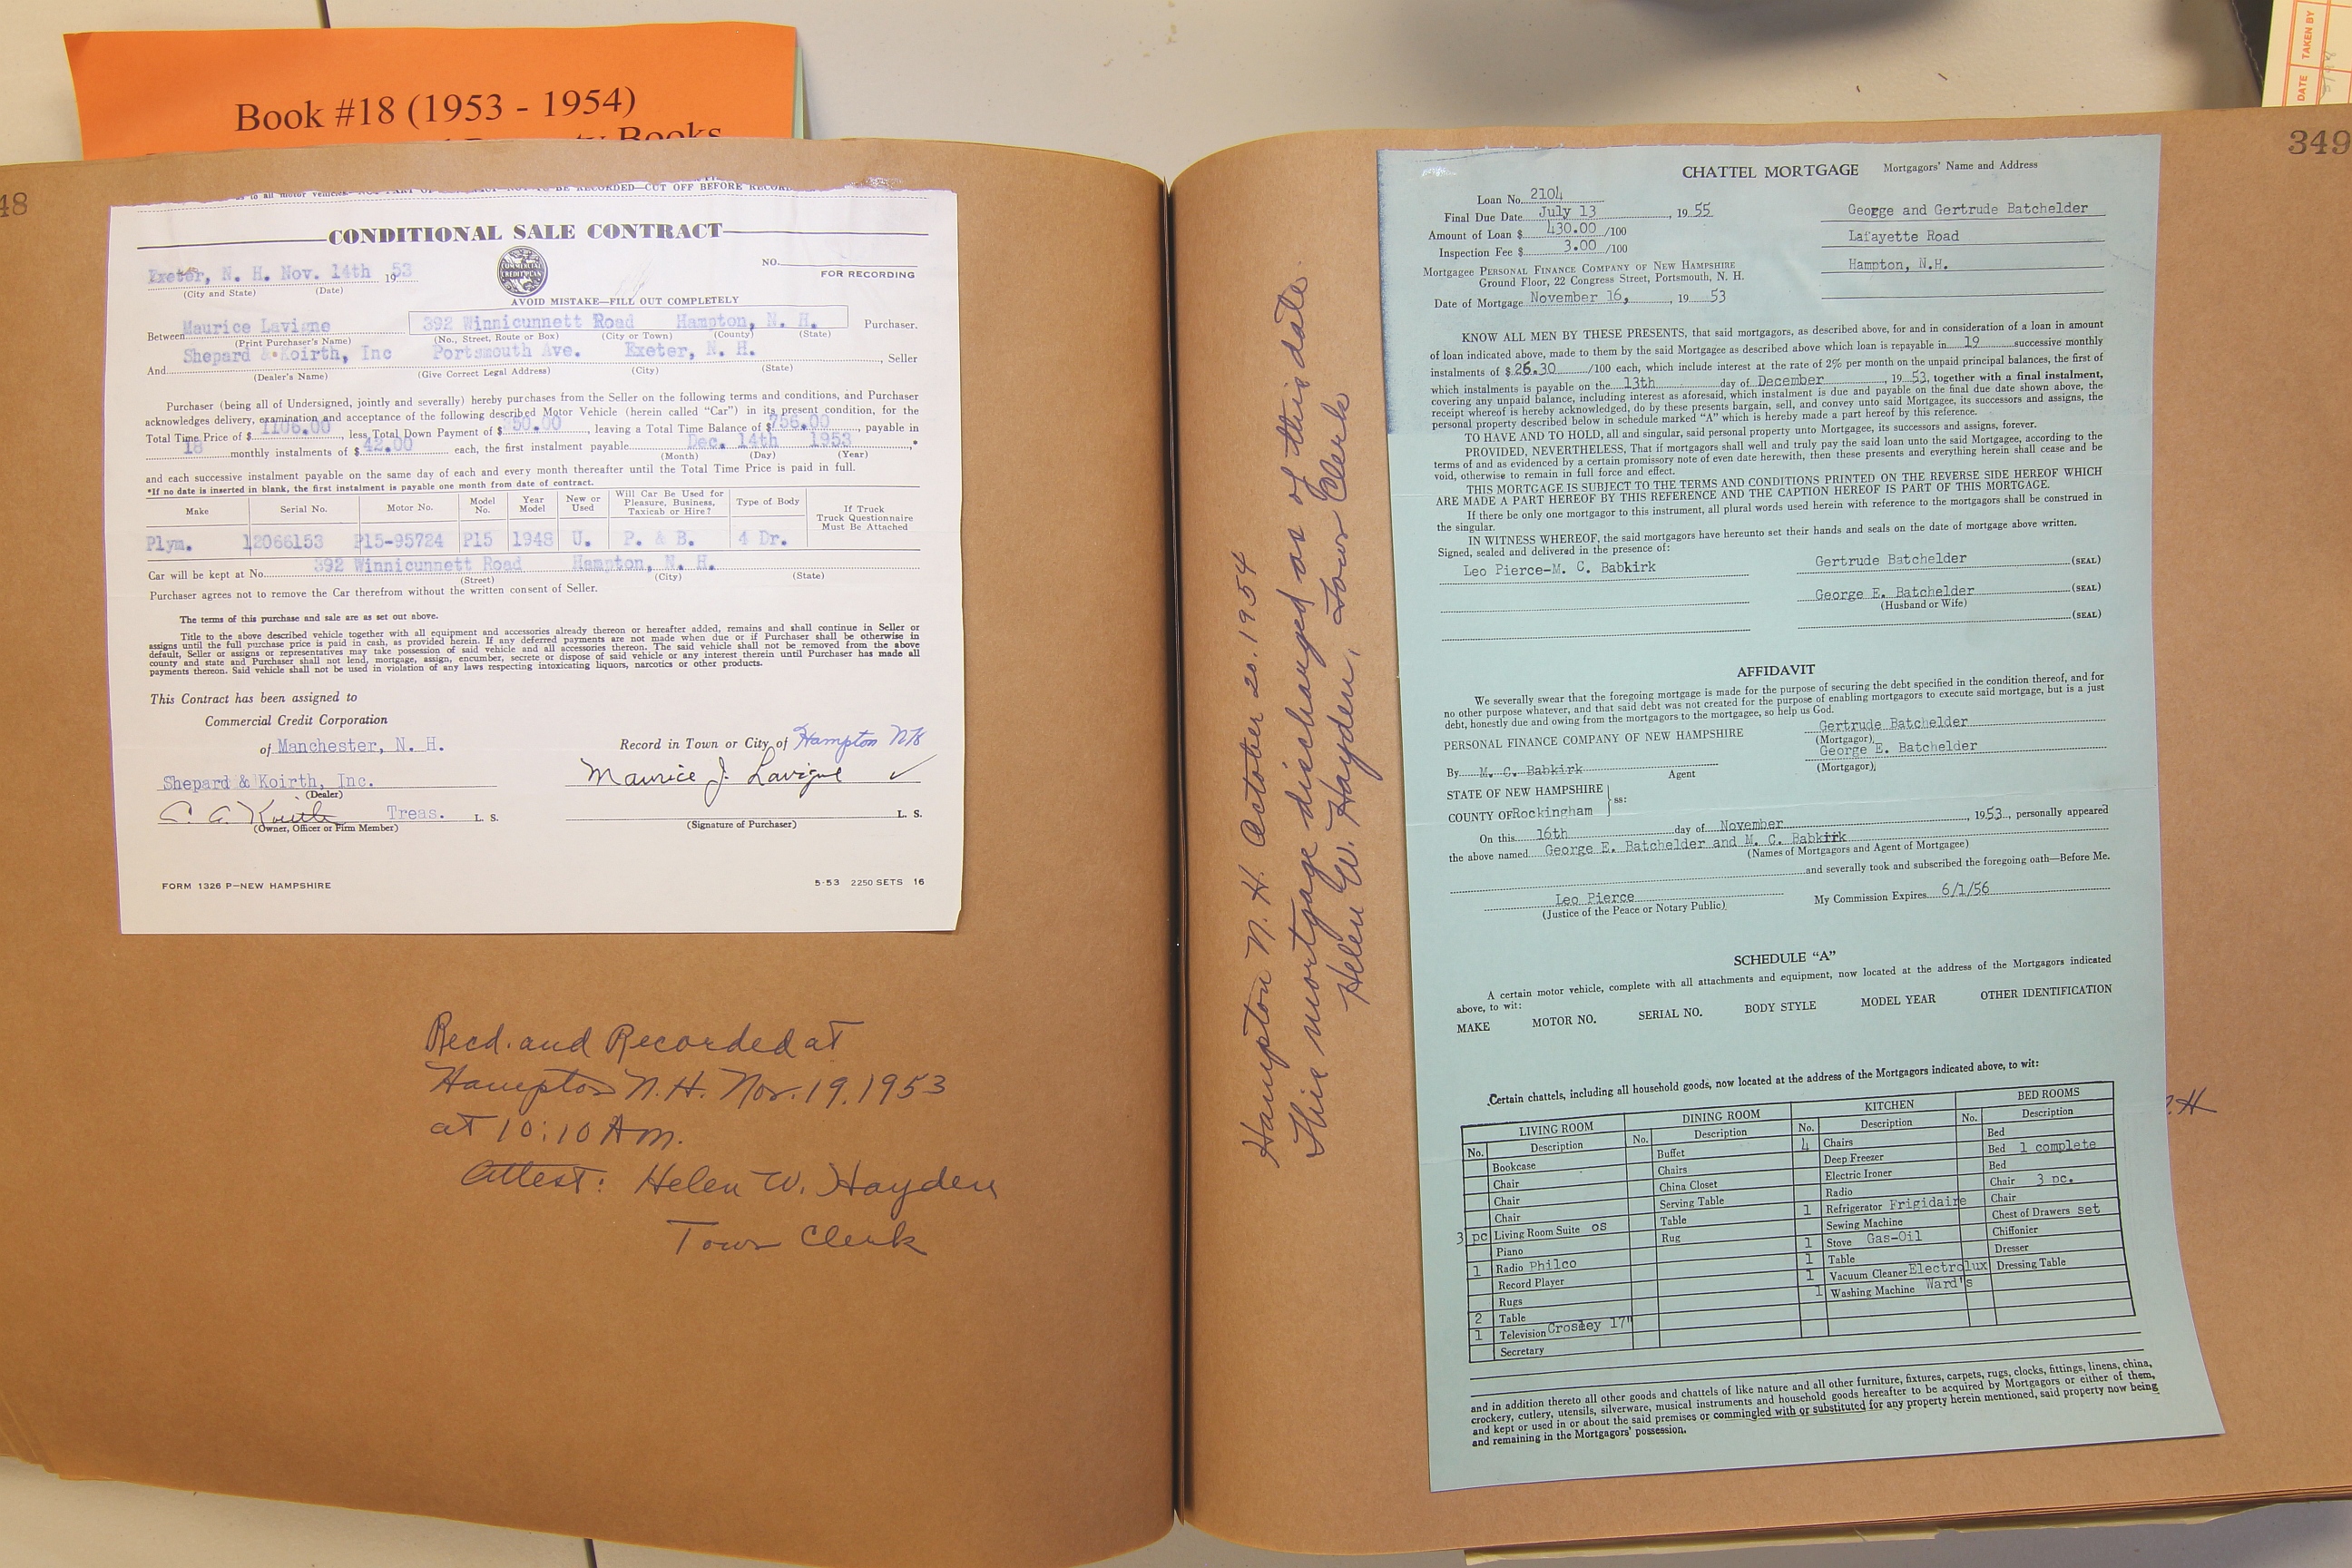 Book #18 (1953 - 1954)
Books
48
BE RECORDED—CUT OFF BEFORE RECORD
CONDITIONAL SALE CONTRACT
Exeter, N. H. Nov. 14th 1953
(City and State) (Date)
COMMERCIAL CREDIT PLAN
NO.
FOR RECORDING
AVOID MISTAKE—FILL OUT COMPLETELY
Between Maurice Lavigne 392 Winnicunnett Road Hampton, N. H. Purchaser.
(Print Purchaser's Name) (No., Street, Route or Box) (City or Town) (County) (State)
And Shepard & Koirth, Inc Portsmouth Ave. Exeter, N. H. , Seller
(Dealer's Name) (Give Correct Legal Address) (City) (State)
Purchaser (being all of Undersigned, jointly and severally) hereby purchases from the Seller on the following terms and conditions, and Purchaser
acknowledges delivery, examination and acceptance of the following described Motor Vehicle (herein called "Car") in its present condition, for the
Total Time Price of $ 1106.00 , less Total Down Payment of $ 350.00 , leaving a Total Time Balance of $ 756.00 , payable in
18 monthly instalments of $ 42.00 each, the first instalment payable Dec. 14th 1953 ,*
(Month) (Day) (Year)
and each successive instalment payable on the same day of each and every month thereafter until the Total Time Price is paid in full.
*If no date is inserted in blank, the first instalment is payable one month from date of contract.
Make Serial No. Motor No. Model No. Year Model New or Used Will Car Be Used for Pleasure, Business, Taxicab or Hire? Type of Body If Truck Truck Questionnaire Must Be Attached
Plym. 12066153 P15-95724 P15 1948 U. P. & B. 4 Dr.
Car will be kept at No. 392 Winnicunnett Road Hampton, N. H.
(Street) (City) (State)
Purchaser agrees not to remove the Car therefrom without the written consent of Seller.
The terms of this purchase and sale are as set out above.
Title to the above described vehicle together with all equipment and accessories already thereon or hereafter added, remains and shall continue in Seller or
assigns until the full purchase price is paid in cash, as provided herein. If any deferred payments are not made when due or if Purchaser shall be otherwise in
default, Seller or assigns or representatives may take possession of said vehicle and all accessories thereon. The said vehicle shall not be removed from the above
county and state and Purchaser shall not lend, mortgage, assign, encumber, secrete or dispose of said vehicle or any interest therein until Purchaser has made all
payments thereon. Said vehicle shall not be used in violation of any laws respecting intoxicating liquors, narcotics or other products.
This Contract has been assigned to
Commercial Credit Corporation
of Manchester, N. H.
Record in Town or City of Hampton NH
Shepard & Koirth, Inc.
(Dealer)
Maurice J. Lavigne
C. A. Koirth Treas. L. S.
(Owner, Officer or Firm Member)
L. S.
(Signature of Purchaser)
FORM 1326 P—NEW HAMPSHIRE
5-53 2250 SETS 16
Recd. and Recorded at
Hampton N.H. Nov. 19, 1953
at 10:10 A.m.
Attest: Helen W. Hayden
Town Clerk
Hampton N. H. October 20, 1954
This mortgage discharged as of this date.
Helen W. Hayden, Town Clerk
349
DATE TAKEN BY
CHATTEL MORTGAGE
Mortgagors' Name and Address
Loan No. 2104
Final Due Date July 13 , 19 55
Amount of Loan $ 430.00 /100
Inspection Fee $ 3.00 /100
Mortgagee PERSONAL FINANCE COMPANY OF NEW HAMPSHIRE
Ground Floor, 22 Congress Street, Portsmouth, N. H.
Date of Mortgage November 16, , 19 53
George and Gertrude Batchelder
Lafayette Road
Hampton, N.H.
KNOW ALL MEN BY THESE PRESENTS, that said mortgagors, as described above, for and in consideration of a loan in amount
of loan indicated above, made to them by the said Mortgagee as described above which loan is repayable in 19 successive monthly
instalments of $ 26.30 /100 each, which include interest at the rate of 2% per month on the unpaid principal balances, the first of
which instalments is payable on the 13th day of December , 19 53, together with a final instalment,
covering any unpaid balance, including interest as aforesaid, which instalment is due and payable on the final due date shown above, the
receipt whereof is hereby acknowledged, do by these presents bargain, sell, and convey unto said Mortgagee, its successors and assigns, the
personal property described below in schedule marked "A" which is hereby made a part hereof by this reference.
TO HAVE AND TO HOLD, all and singular, said personal property unto Mortgagee, its successors and assigns, forever.
PROVIDED, NEVERTHELESS, That if mortgagors shall well and truly pay the said loan unto the said Mortgagee, according to the
terms of and as evidenced by a certain promissory note of even date herewith, then these presents and everything herein shall cease and be
void, otherwise to remain in full force and effect.
THIS MORTGAGE IS SUBJECT TO THE TERMS AND CONDITIONS PRINTED ON THE REVERSE SIDE HEREOF WHICH
ARE MADE A PART HEREOF BY THIS REFERENCE AND THE CAPTION HEREOF IS PART OF THIS MORTGAGE.
If there be only one mortgagor to this instrument, all plural words used herein with reference to the mortgagors shall be construed in
the singular.
IN WITNESS WHEREOF, the said mortgagors have hereunto set their hands and seals on the date of mortgage above written.
Signed, sealed and delivered in the presence of:
Leo Pierce-M. C. Babkirk
Gertrude Batchelder (SEAL)
George E. Batchelder (SEAL)
(Husband or Wife)
(SEAL)
AFFIDAVIT
We severally swear that the foregoing mortgage is made for the purpose of securing the debt specified in the condition thereof, and for
no other purpose whatever, and that said debt was not created for the purpose of enabling mortgagors to execute said mortgage, but is a just
debt, honestly due and owing from the mortgagors to the mortgagee, so help us God.
PERSONAL FINANCE COMPANY OF NEW HAMPSHIRE
Gertrude Batchelder
(Mortgagor)
George E. Batchelder
(Mortgagor)
By M. C. Babkirk
Agent
STATE OF NEW HAMPSHIRE
ss:
COUNTY OF Rockingham
On this 16th day of November , 1953 , personally appeared
the above named George E. Batchelder and M. C. Babkirk
(Names of Mortgagors and Agent of Mortgagee)
and severally took and subscribed the foregoing oath—Before Me.
Leo Pierce
(Justice of the Peace or Notary Public)
My Commission Expires 6/1/56
SCHEDULE "A"
A certain motor vehicle, complete with all attachments and equipment, now located at the address of the Mortgagors indicated
above, to wit:
MAKE MOTOR NO. SERIAL NO. BODY STYLE MODEL YEAR OTHER IDENTIFICATION
Certain chattels, including all household goods, now located at the address of the Mortgagors indicated above, to wit:
LIVING ROOM
No. Description
Bookcase
Chair
Chair
Chair
3 pc Living Room Suite os
Piano
1 Radio Philco
Record Player
Rugs
2 Table
1 Television Crosley 17"
Secretary
DINING ROOM
No. Description
Buffet
Chairs
China Closet
Serving Table
Table
Rug
KITCHEN
No. Description
4 Chairs
Deep Freezer
Electric Ironer
Radio
1 Refrigerator Frigidaire
Sewing Machine
1 Stove Gas-Oil
1 Table
1 Vacuum Cleaner Electrolux
1 Washing Machine Ward's
BED ROOMS
No. Description
Bed
Bed 1 complete
Bed
Chair 3 pc.
Chair
Chest of Drawers set
Chiffonier
Dresser
Dressing Table
and in addition thereto all other goods and chattels of like nature and all other furniture, fixtures, carpets, rugs, clocks, fittings, linens, china,
crockery, cutlery, utensils, silverware, musical instruments and household goods hereafter to be acquired by Mortgagors or either of them,
and kept or used in or about the said premises or commingled with or substituted for any property herein mentioned, said property now being
and remaining in the Mortgagors' possession.